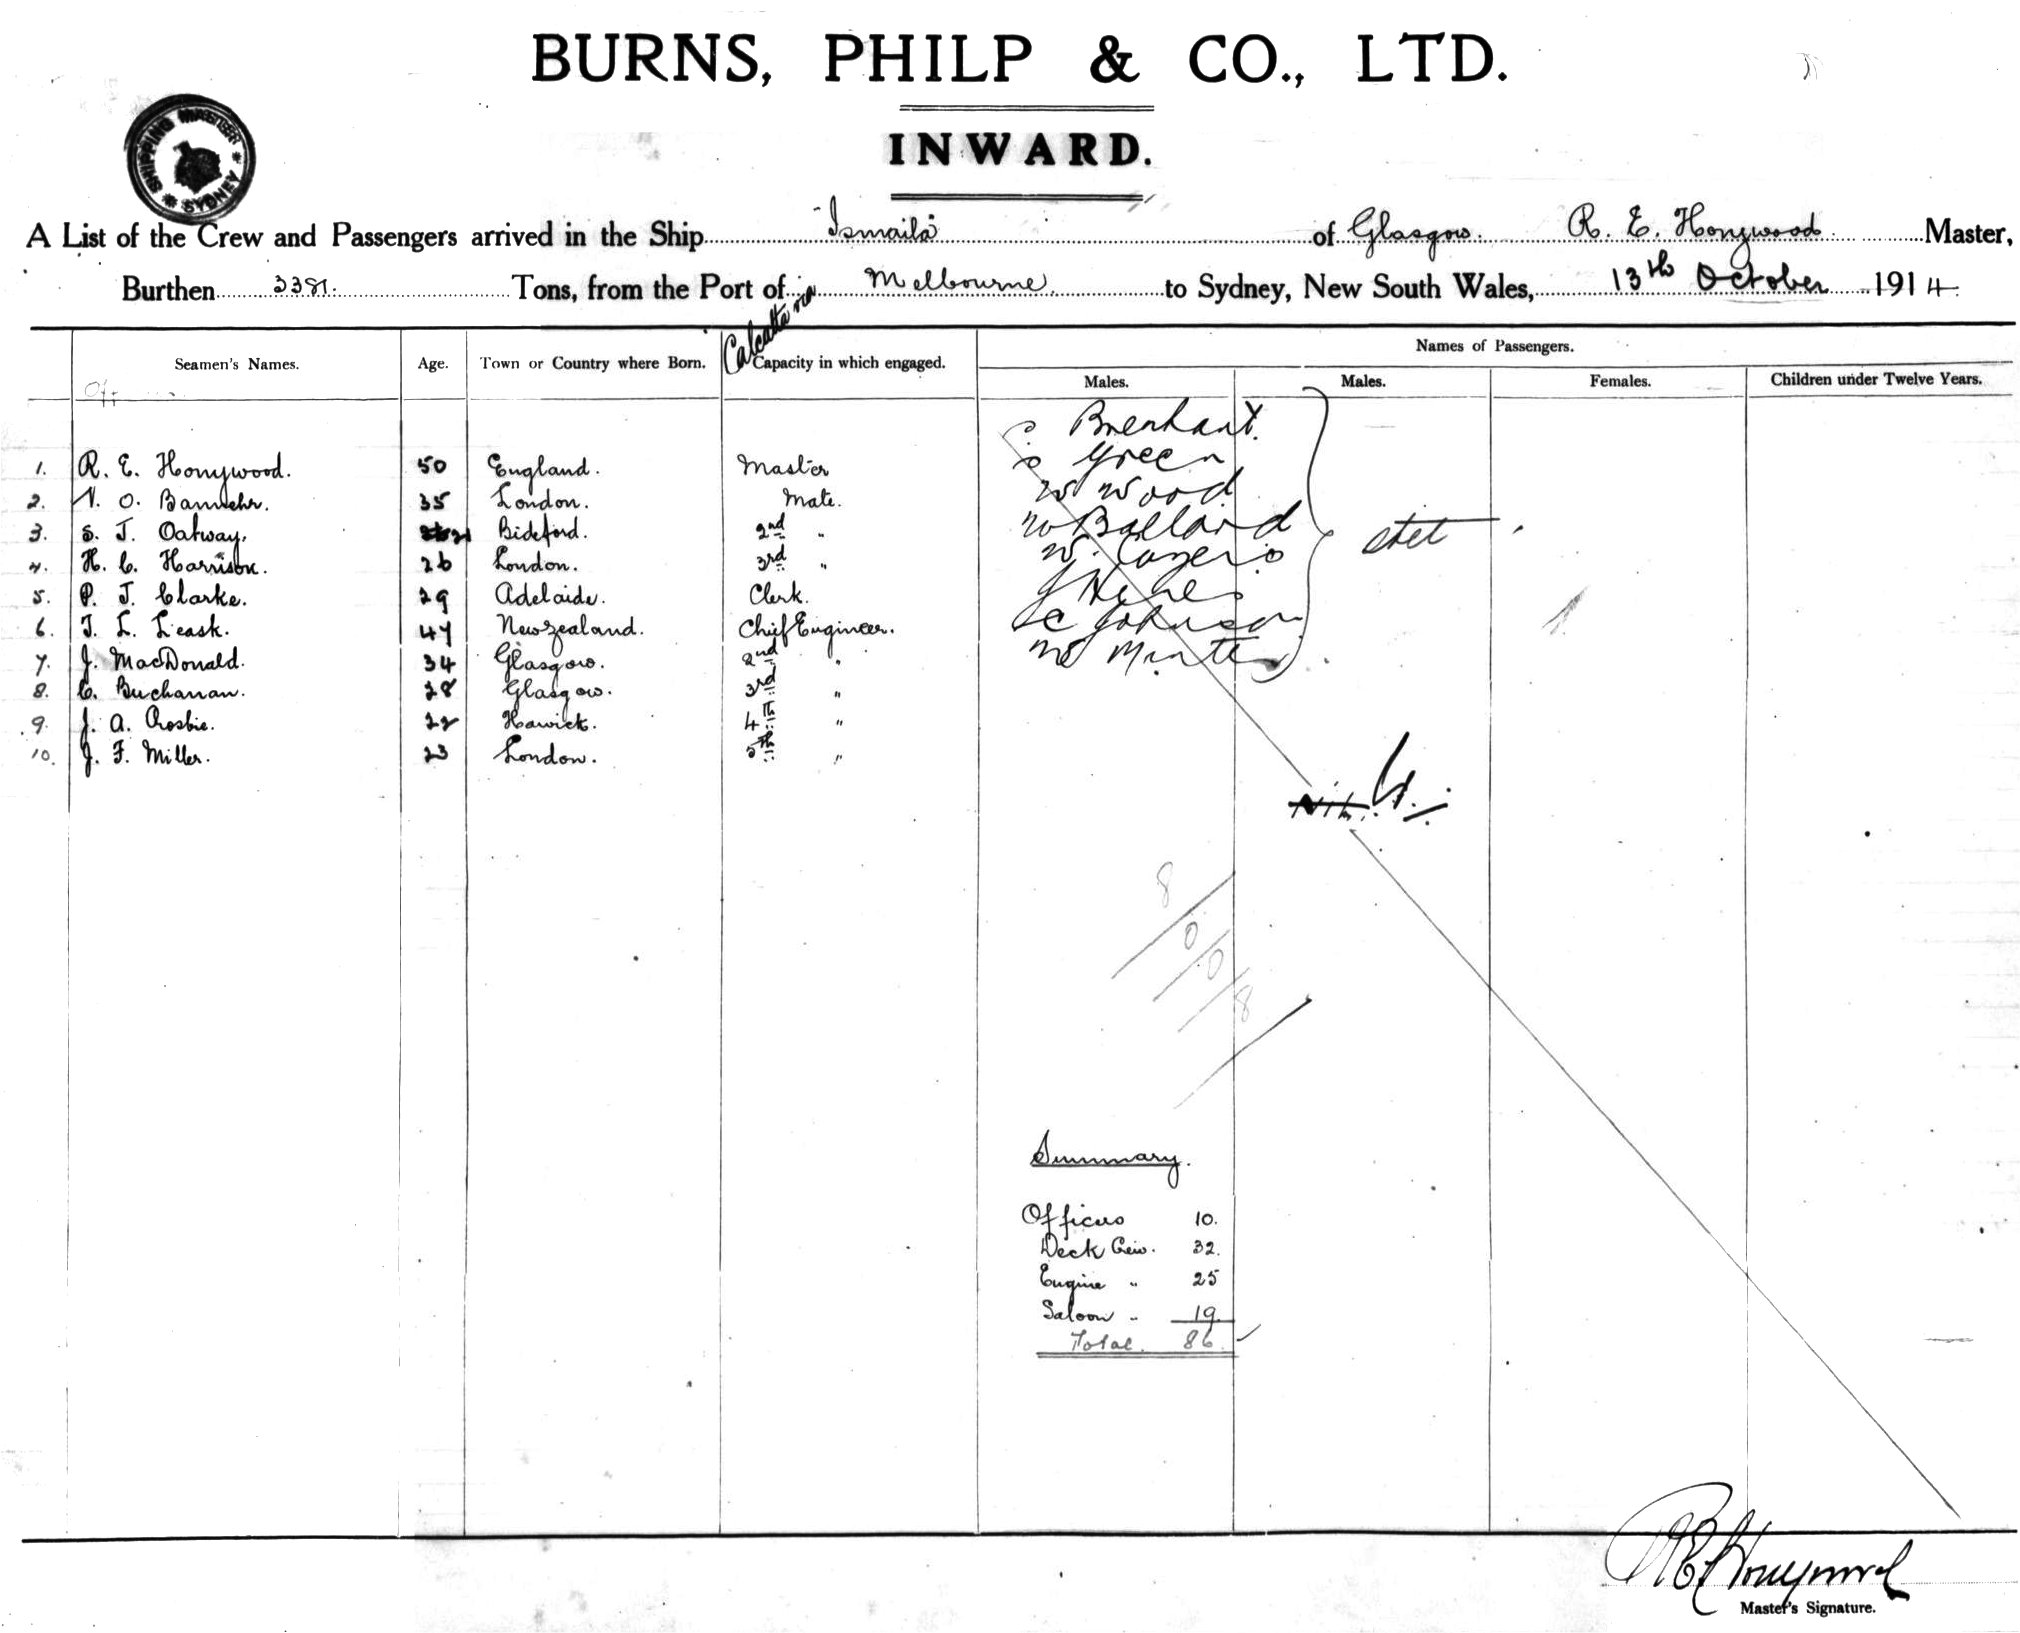 BURNS, PHILP & CO., LTD.
INWARD.
SHIPPING MASTER
SYDNEY
A List of the Crew and Passengers arrived in the Ship "Ismaila" of Glasgow. R. E. Honywood Master,
Burthen 3381. Tons, from the Port of Calcutta via Melbourne to Sydney, New South Wales, 13th October 1914.
Seamen's Names. Age. Town or Country where Born. Capacity in which engaged. Names of Passengers.
Males. Males. Females. Children under Twelve Years.
1. R. E. Honywood. 50 England. Master
2. O. 35 London. Mate.
3. S. J. Oatway. 21 Bideford. 2nd "
4. H. C. Harrison. 26 London. 3rd "
5. P. J. Clarke. 29 Adelaide. Clerk.
6. T. L. Leask. 47 New Zealand. Chief Engineer.
7. J. MacDonald. 34 Glasgow. 2nd "
8. C. Buchanan. 28 Glasgow. 3rd "
9. J. A. Crosbie. 22 Hawick. 4th "
10. J. F. Miller. 23 London. 5th "
Green
W Wood
W Ballard
C Johnson
stet
Nil.
8/0/0/8
Summary.
Officers 10.
Deck Crew. 32.
Engine " 25
Saloon " 19
Total. 86.
R E Honywood
Master's Signature.